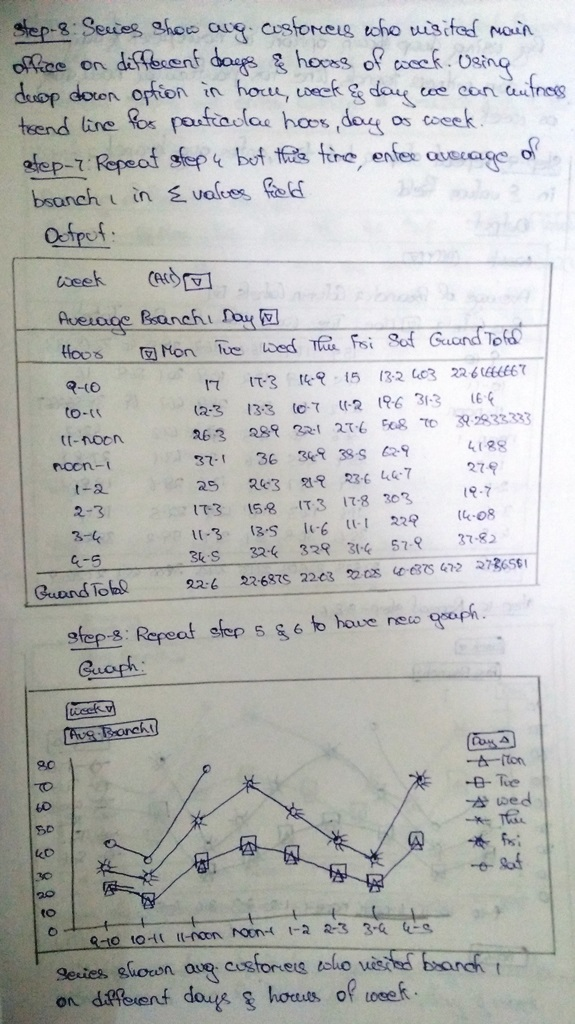 Step-8: Series show avg. customers who visited main
office on different days & hours of week. Using
drop down option in hour, week & day we can witness
trend line for particular hour, day or week.
Step-7: Repeat step 4 but this time, enter average of
branch 1 in Σ values field
Output:
Week (All) ▽
Average Branch 1 Day ▽
Hour ▽ Mon Tue Wed Thu Fri Sat Grand Total
9-10 17 17.3 14.9 15 13.2 403 22.6166667
10-11 12.3 13.3 10.7 11.2 19.6 31.3 16.4
11-noon 26.3 28.9 32.1 27.6 50.8 70 39.2833333
noon-1 37.1 36 34.9 38.5 62.9 41.88
1-2 25 24.3 21.9 23.6 44.7 27.9
2-3 17.3 15.8 17.3 17.8 303 19.7
3-4 11.3 13.5 11.6 11.1 229 14.08
4-5 34.5 32.4 329 31.4 57.9 37.82
Grand Total 22.6 22.6875 22.03 22.025 40.0375 47.2
Step-8: Repeat step 5 & 6 to have new graph.
Graph:
Week ▽
Avg. Branch 1
Day △
80
70
60
50
40
30
20
10
0
Mon
Tue
Wed
Thu
Fri
Sat
9-10 10-11 11-noon noon-1 1-2 2-3 3-4 4-5
Series shown avg. customers who visited branch 1
on different days & hours of week.